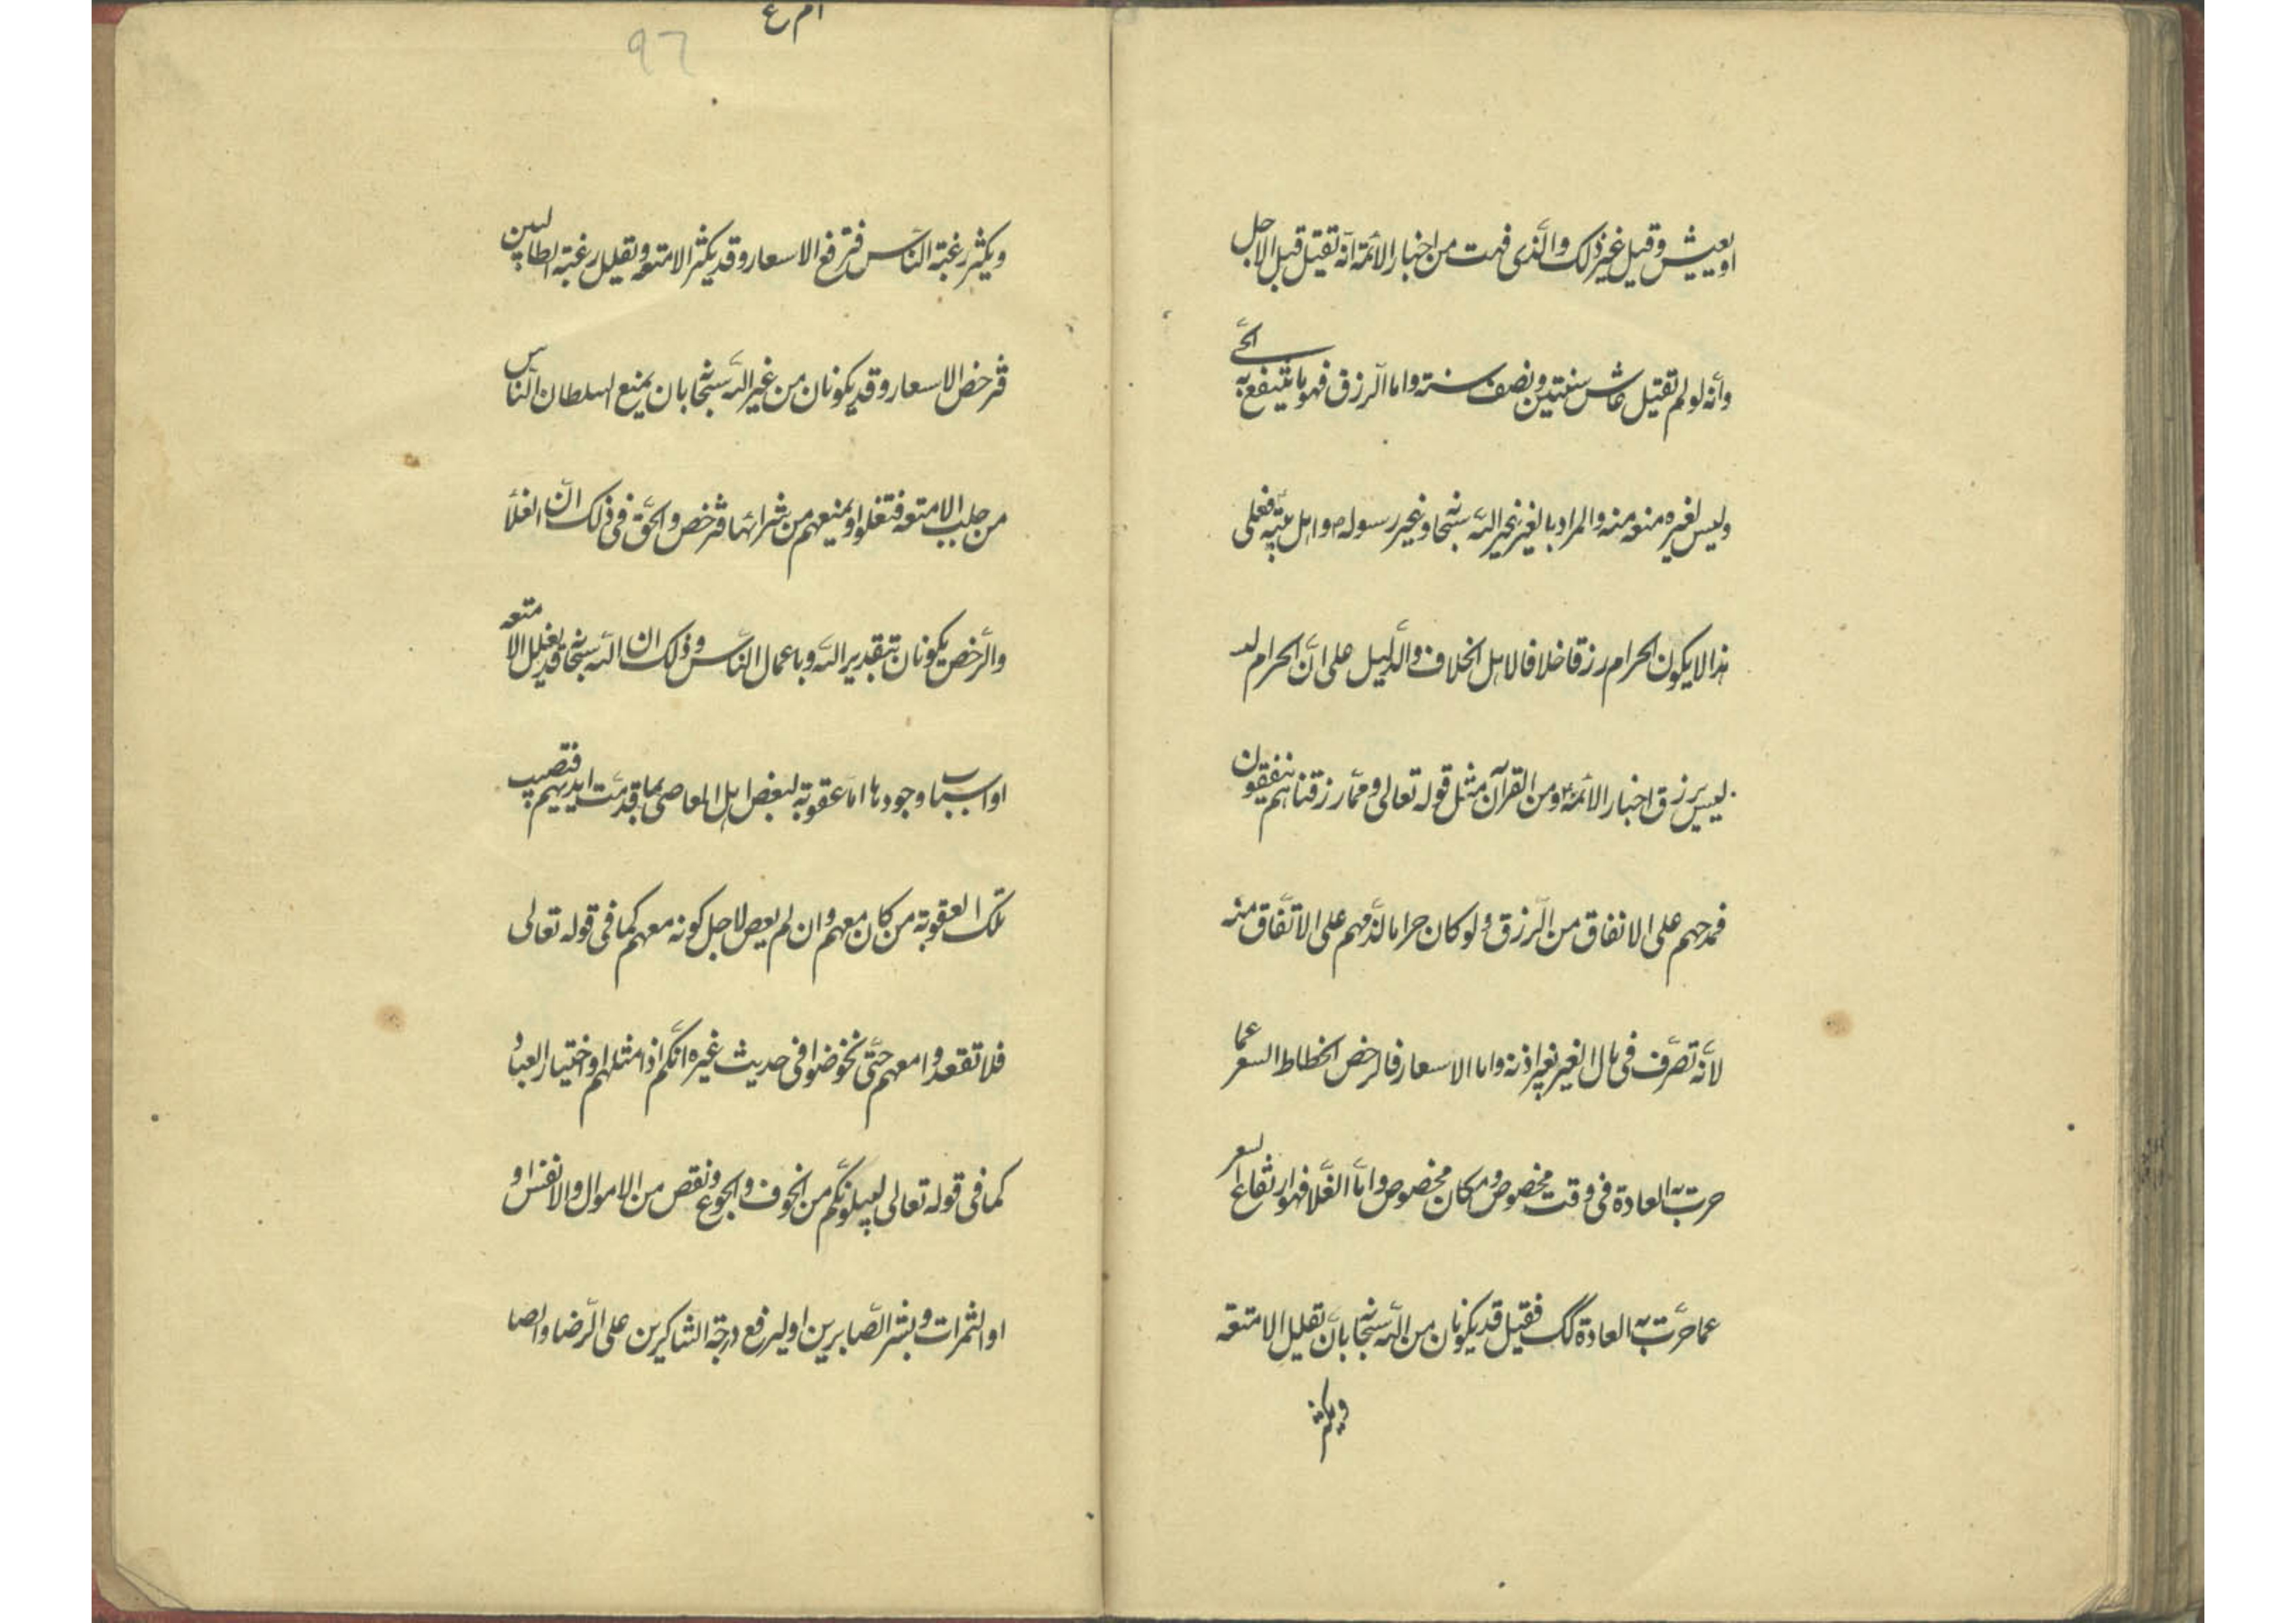 او يعيش وقيل غير ذلك والّذي فهمت من اخبار الائمّة انّه تقتيل قبل الاجل
وأنّه لو لم تقتيل عاش سنتين ونصف سنته واما الرّزق فهو ما ينتفع به الحىّ
وليس لغيره منعه منه والمراد بالغير غير اللّه سبحانه وغير رسوله ص واهل بيته فعلى
هذا لا يكون الحرام رزقا خلافا لاهل الخلاف والدّليل على انّ الحرام
ليس برزق اخبار الائمّة ع ومن القرآن مثل قوله تعالى وممّا رزقناهم ينفقون
فمدحهم على الانفاق من الرّزق ولو كان حراما لذمهم على الاتّفاق منه
لانّه تصرّف فى مال الغير بغير اذنه واما الاسعار فالرخص انحطاط السعر عما
جرت به العادة فى وقت مخصوص ومكان مخصوص وامّا الغّلا فهو ارتفاع السعر
عما جرّت به العادة كك فقيل قد يكونان من اللّه سبحانه بانّ تقليل الامتعة
ويكثر
ام ع
٩٦
ويكثر رغبة النّاس فترفع الاسعار وقد يكثر الامتعه وتقليل رغبته الطالبين
فترخص الاسعار وقد يكونان من غير اللّه سبحانه بان يمنع السلطان النّاس
من جلب الامتعه فتغلوا ويمنيعهم من شرائها فترخص والحقّ فى ذلك انّ الغلاّ
والرّخص يكونان بتقدير اللّه وباعمال النّاس وذلك ان اللّه سبحانه قد يقلل الامتعه
او اسباب وجودها امّا عقوبة لبعض اهل المعاصى بما قدمت ايديهم فتصيب
تلك العقوبة من كان معهم وان لم يعص لاجل كونه معهم كما فى قوله تعالى
فلا تقعدوا معهم حتّى يخوضوا فى حديث غيره انّكم اذا مثلهم او اختيار العباد
كما فى قوله تعالى ليبلونّكم من الخوف والجوع ونقص من الاموال والانفس او
او الثمرات وبشر الصّابرين او ليرفع درجة الشاكرين على الرّضا والصا